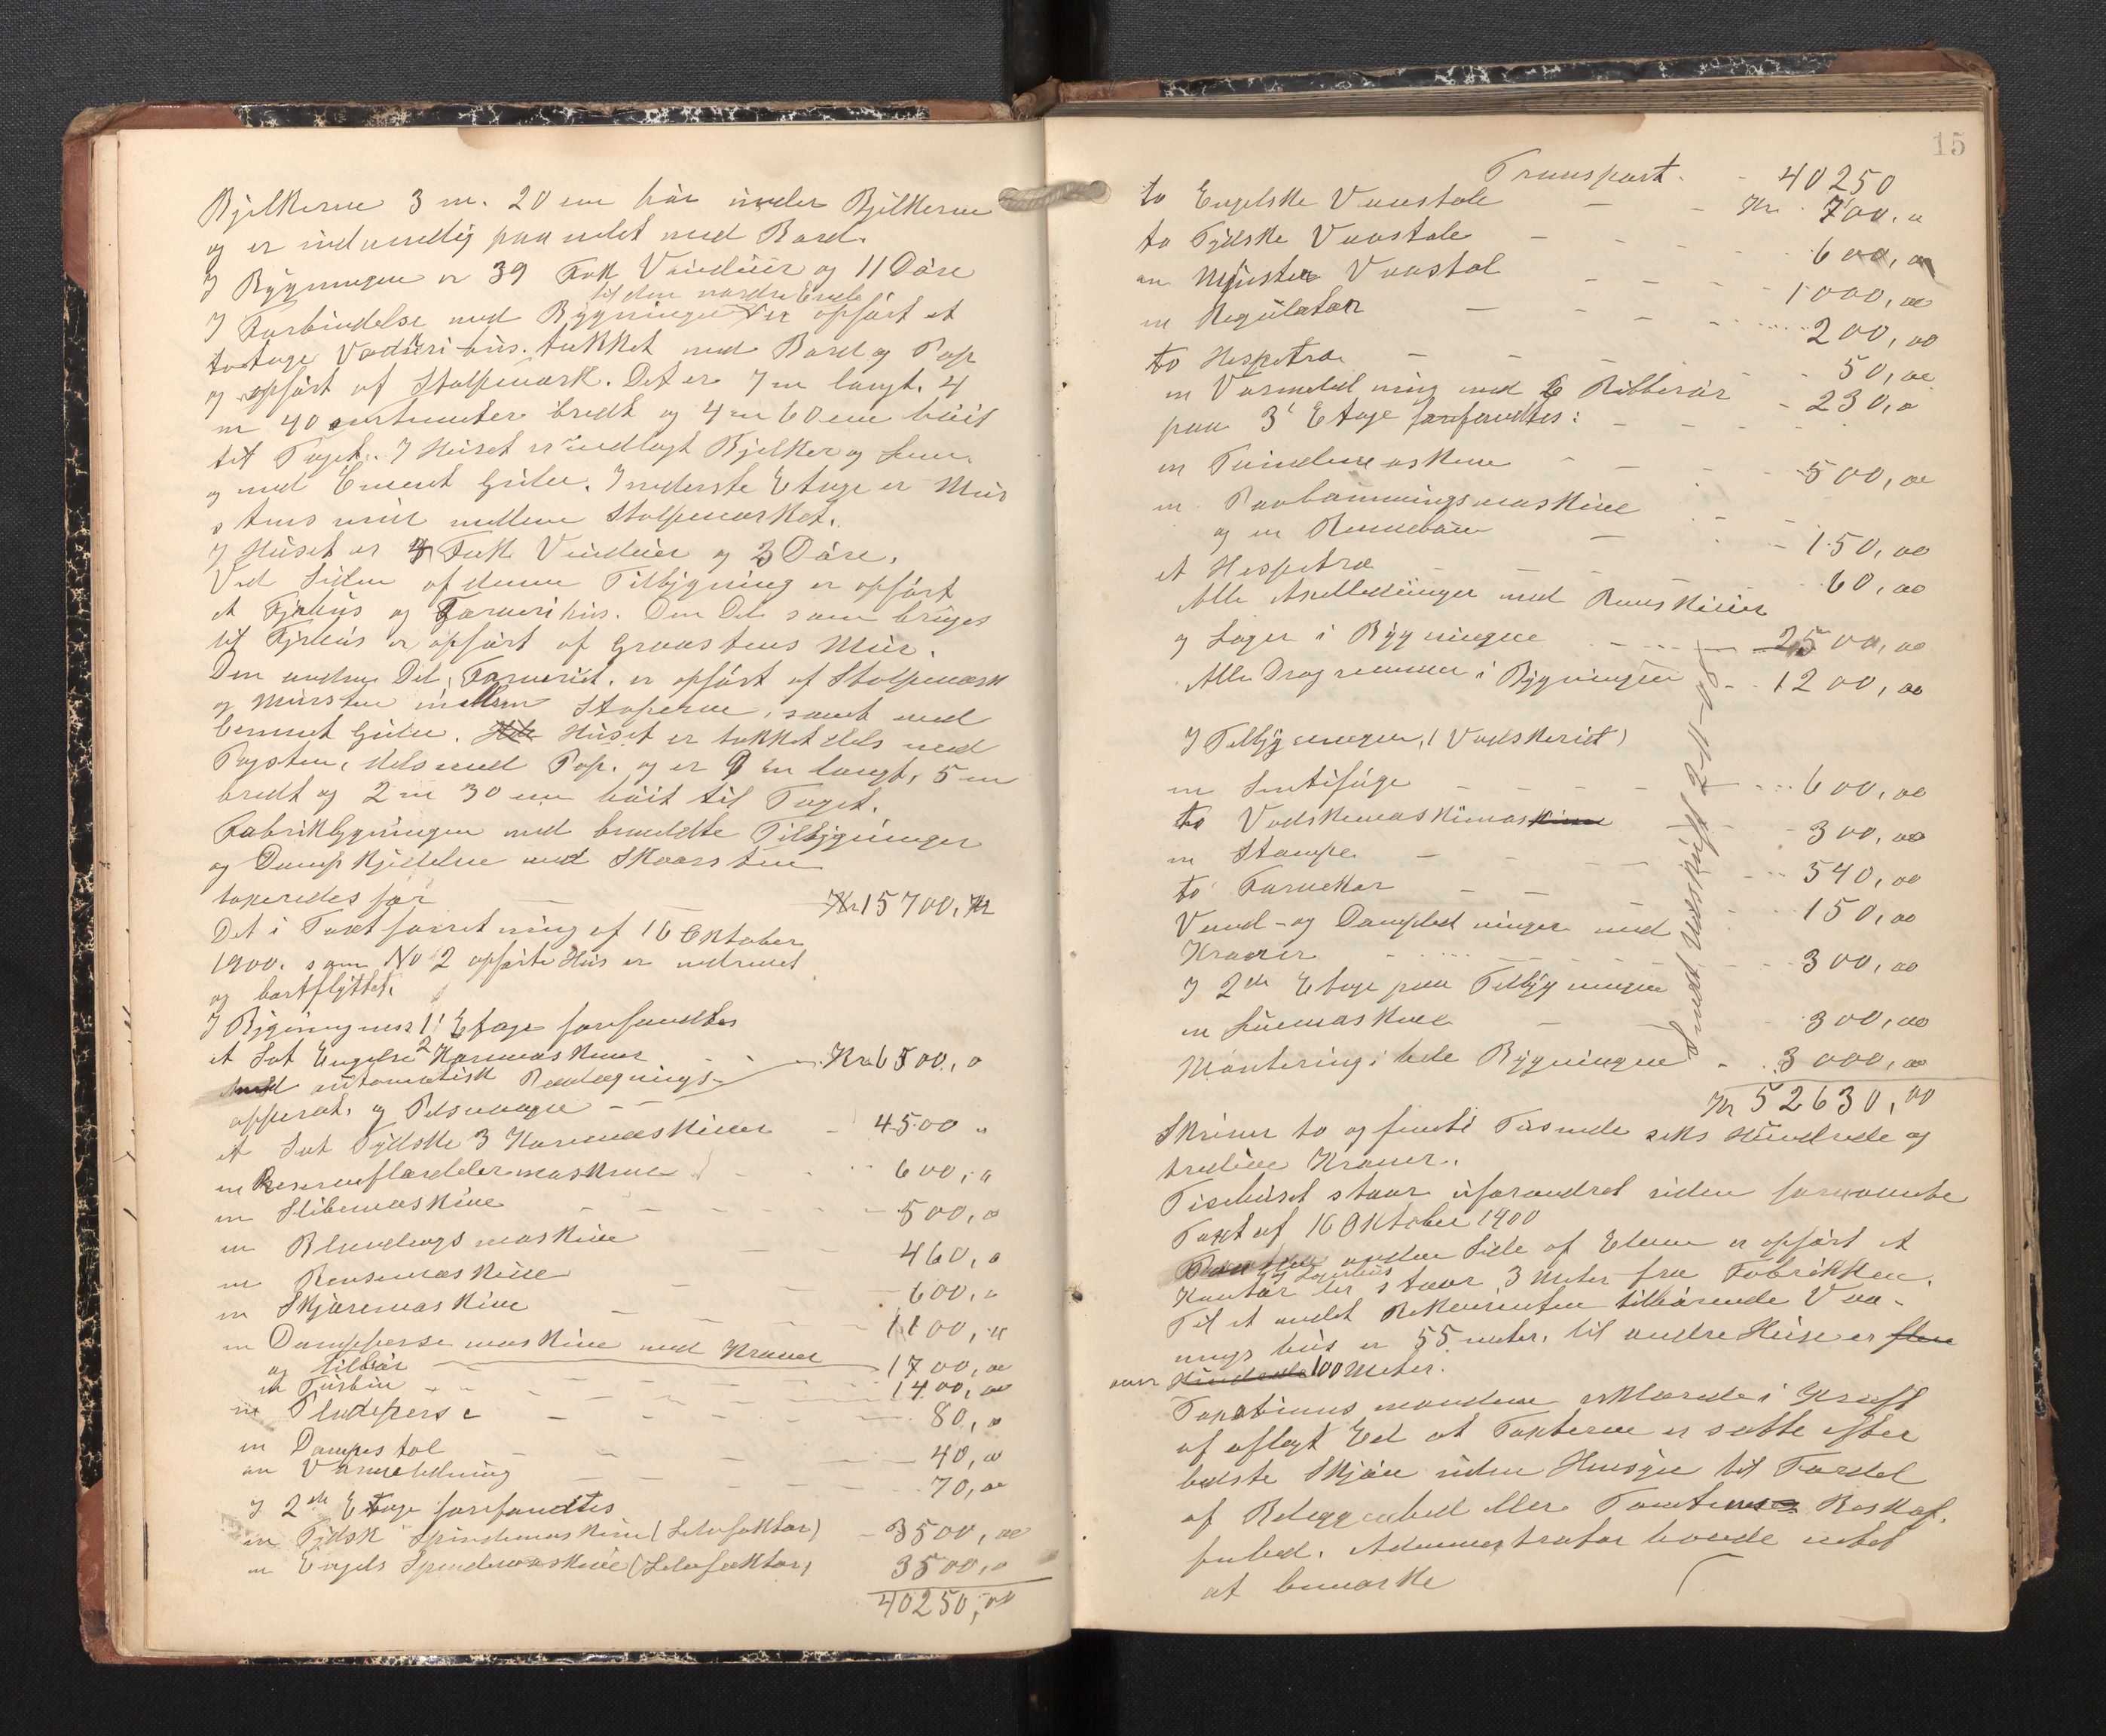 Bjelkerne 3 m. 20 cm hår under Bjelkerne
og er indvendig panelet med Bord.
I Bygningen er 39 Fak Vinduer og 11 Døre
til den nordre Ende
I Forbindelse med Bygningen er opført et
toetage Vadskerihus. tækket med Bord og Pap
og opført af Stolpeværk. Det er 7 m langt. 4
m 40 centimeter bredt og 4 m 60 cm høit
til Taget. I Huset er indlagt Bjelker og
og med Cement Gulve. I nederste Etage er Mur
stens mur mellem Stolpeværket.
I Huset er 4 Fak Vinduer og 3 Døre.
Ved Siden af denne Tilbygning er opført
et Fyrhus og Farverihus. Den Del som bruges
til Fyrhus er opført af Graastens Mur.
Den anden Del, Farveriet, er opført af Stolpeværk
og Mursten mellem Stolperne, samt med
Cement Gulve. Huset er tækket dels med
Tagsten, dels med Pap. og er 9 m langt, 5 m
bredt og 2 m 30 cm høit til Taget.
Fabrikbygningen med bemeldte Tilbygninger
og Dampkjedelen med Skorsten
taxeredes for Kr 15700, Kr
Det i Taxtforretning af 16 Oktober
1900. som No 2 opførte Hus er nedrevet
og bortflyttet.
I Bygningens 1' Etage forefandtes
et Sæt Engelske 2 Karmaskiner Kr 6500, o
med automatisk Paalægnings-
apperat. og Pelsvogne
et Sæt Tydske 3 Karmaskiner 4500 "
en Reserveflordelermaskine 600, "
en Slibemaskine 500, o
en Blandings maskine 460, o
en Rensemaskine 600, "
en Skjæremaskine 1100, "
en Damppersemaskine med Kraner
og tilbør 1700, oo
en Turbin 1400, oo
en Pladeperse 80, o
en Dampstol 40, o
en Varmeledning 70, oo
I 2den Etage forefandtes
en Tydsk Spindemaskine (Selvfaktor) 3500, oo
en Engels Spindemaskine (Selvfaktor) 3500, o
40250, oo
15
Transport. 40250
to Engelske Vævstole Kr. 700, o
to Tydske Vævstole 600, o
en Mynster Vævstol 1000, oo
en Regulator 200, oo
to Hespetræ 50, oo
en Varmeledning med 6 Ribberør 230, o
paa 3' Etage forefandtes:
en Tvindemaskine 500, oo
en maskine
og en Rendebom 150, oo
et Hespetræ 60, oo
Alle Axelledninger med Remskiver
og Lager i Bygningen 2500, oo
Alle Dragremmer i Bygningen 1200, oo
I Tilbygningen, (Vadskeriet)
en Sentifuge 600, oo
to Vadskemaskinaskine 300, oo
en Stampe 540, oo
to Farvekar 150, oo
Vand- og Dampledninger med
Kraner 300, oo
I 2den Etage paa Tilbygningen
en Luemaskine 300, oo
Montering i hele Bygningen 3000, oo
Kr 52630, oo
Sendt Udskrift 2-11-08
Skriver to og femti Tusende seks Hundrede og
tredive Kroner.
Tisehuset staar uforandret siden forrombe
Taxt af 16 Oktober 1900
anden Side af Elven er opført et
og Lagerhus
Kontor der staar 3 Meter fra Fabrikken.
Til et andet Rekvirenten tilhørende Vaa-
nings hus er 55 meter. til andre Huse er flere
over Hundrede 100 Meter.
Taxations mændene erklærede i Kraft
af aflagt Ed at Taxterne er satte efter
bedste Skjøn uden Hensyn til Fordel
af Beliggenhed eller Tomtens Beskaf-
fenhed. Administrator havde intet
at bemærke